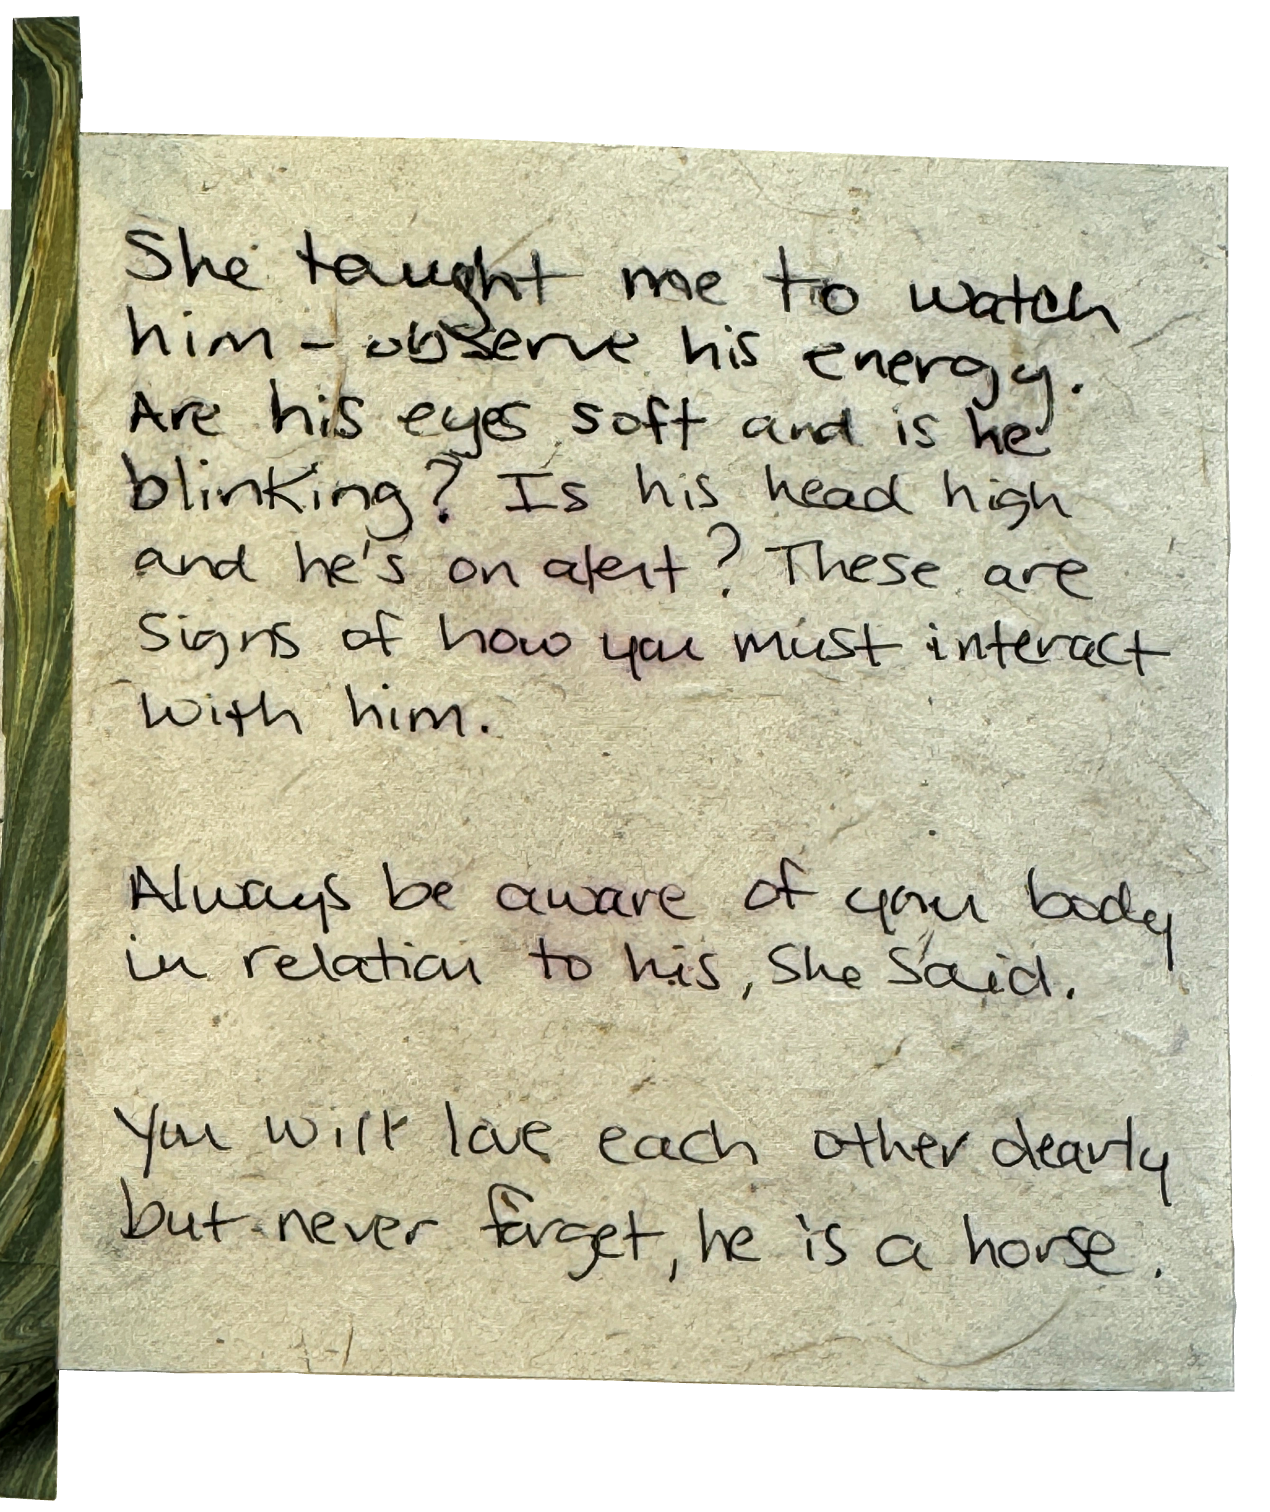 She taught me to watch
him - observe his energy.
Are his eyes soft and is he
blinking? Is his head high
and he's on alert? These are
signs of how you must interact
with him.
Always be aware of your body
in relation to his, she said.
You will love each other dearly
but never forget, he is a horse.